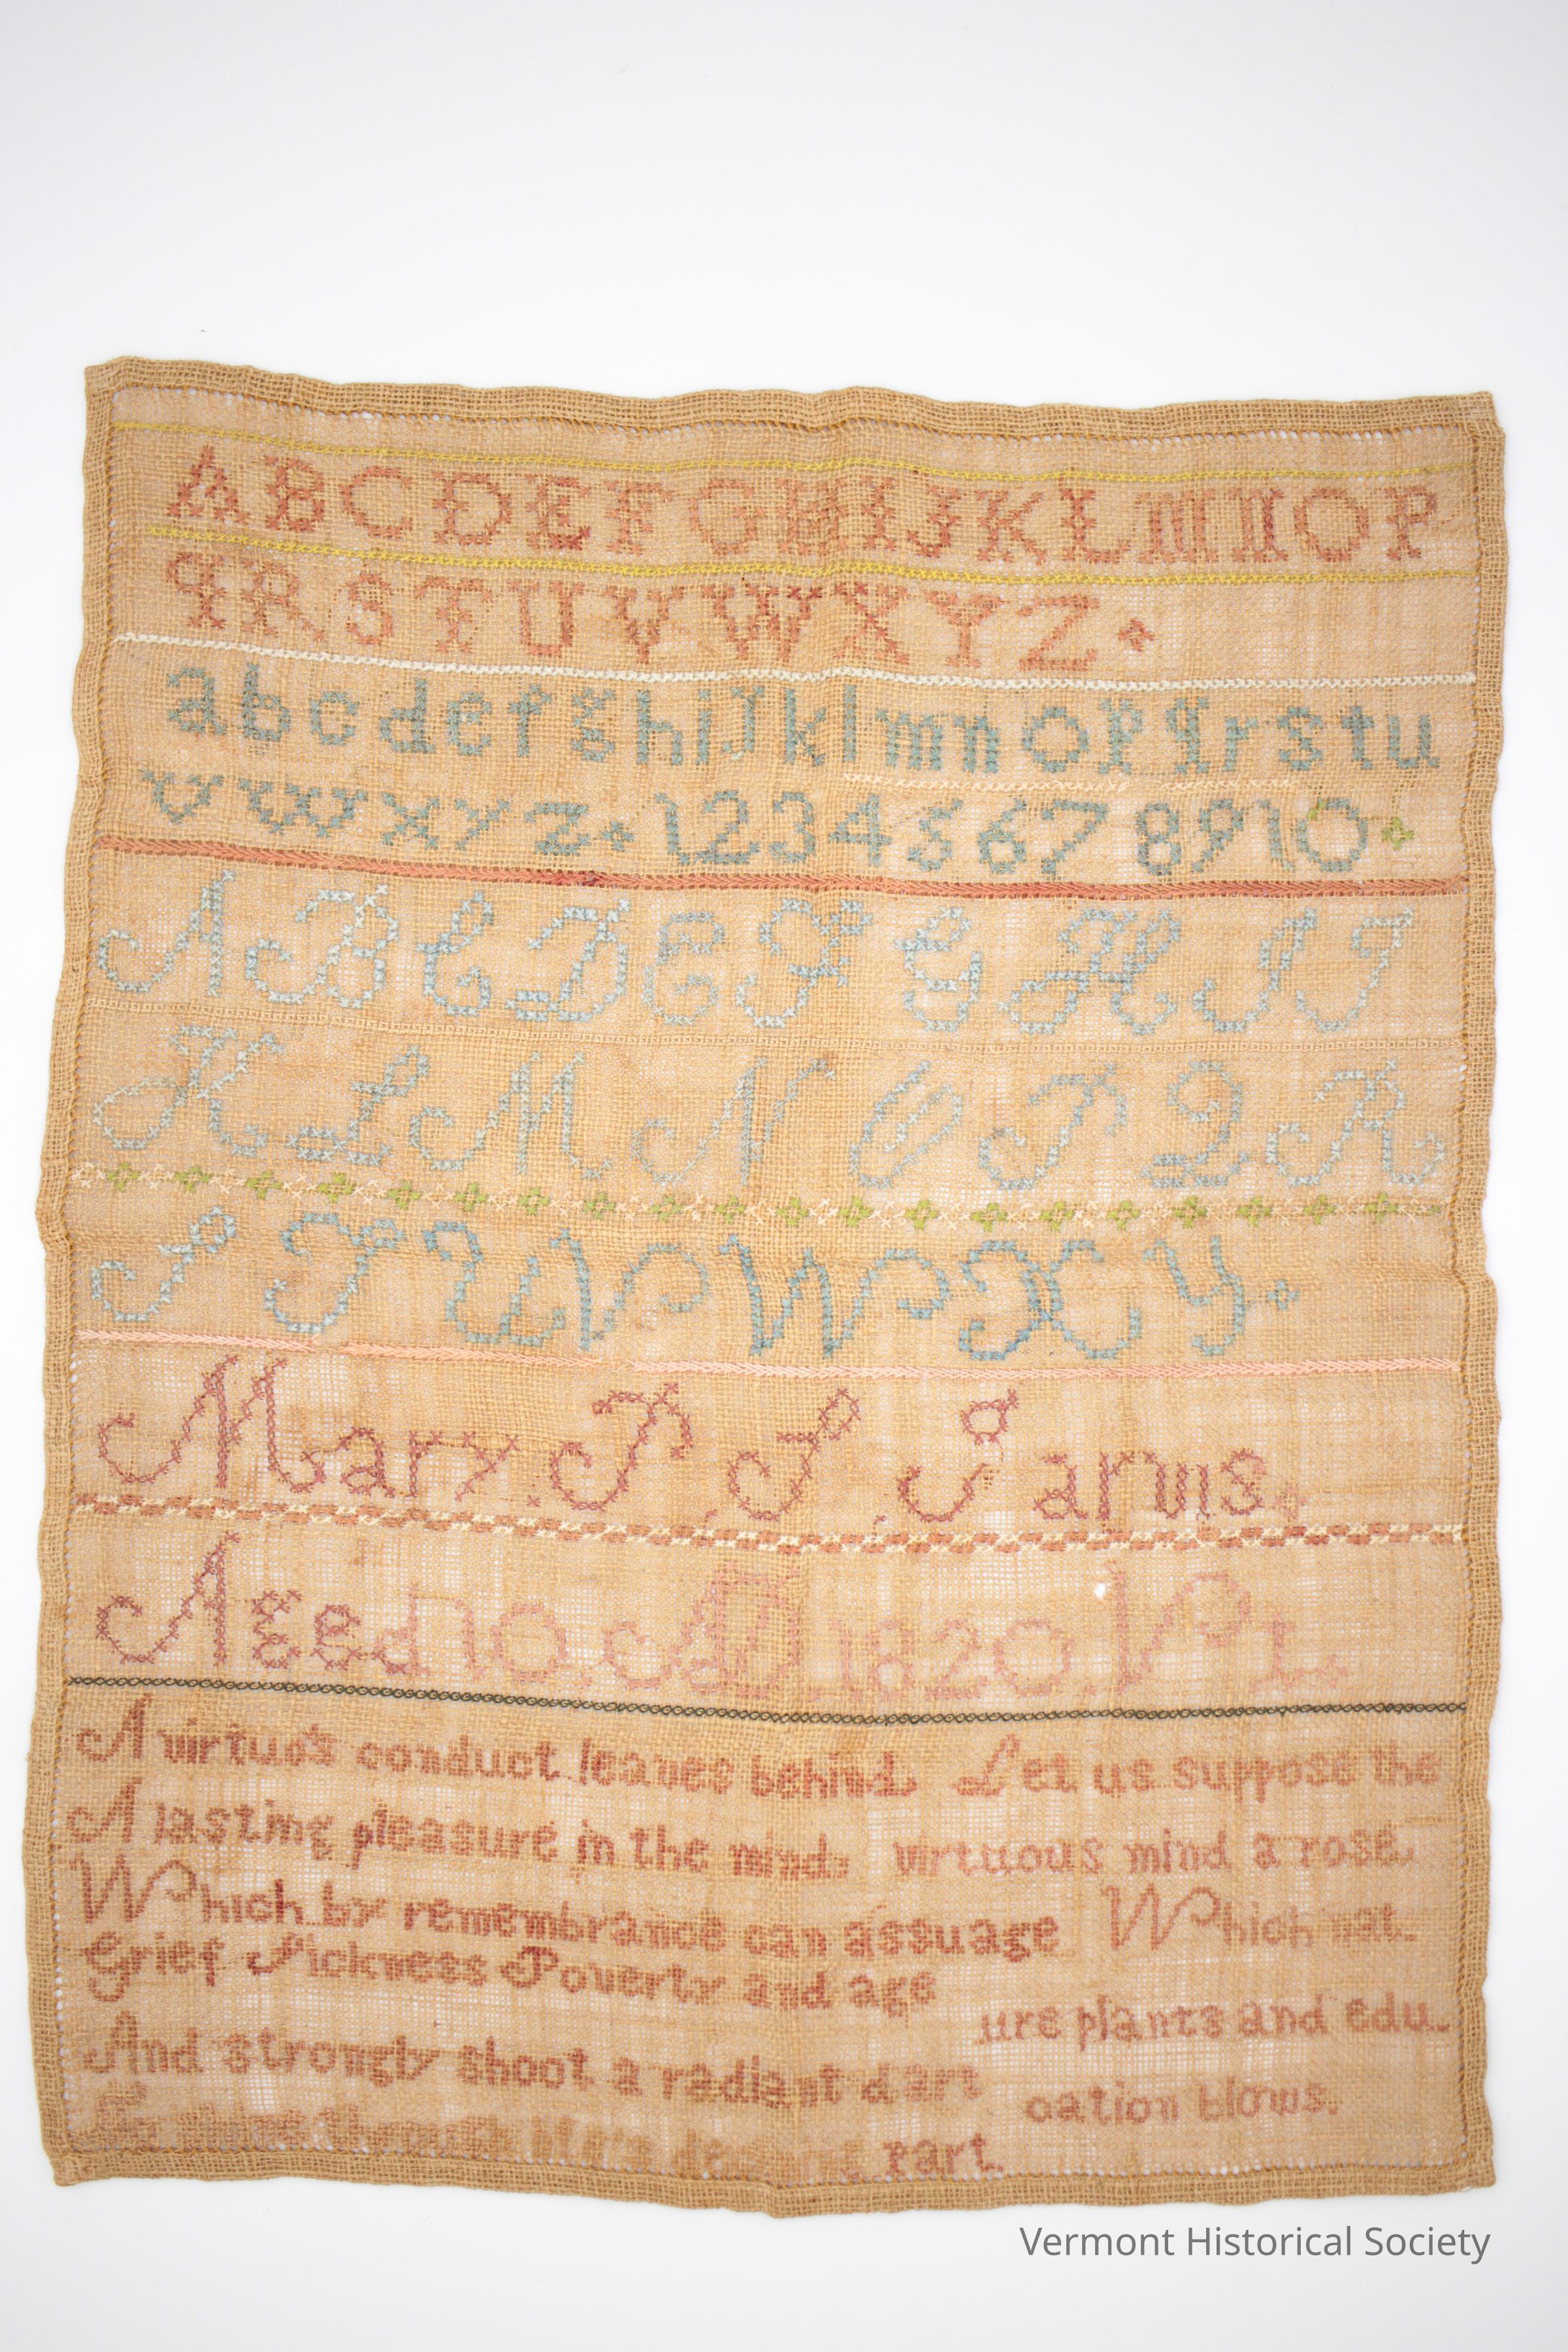 A B C D E F G H I J K L M N O P
q R S T U V W X Y Z
a b c d e f g h i j k l m n o p q r s t u
v w x y z 1 2 3 4 5 6 7 8 9 10
A B C D E F G H I J
K L M N O P Q R
S T U V W X Y
Mary. P. S. Jarvis.
Aged 10. AD 1820. Vt.
A virtuo's conduct leaves behind.
A lasting pleasure in the mind,
Which by remembrance can assuage
Grief Sickness Poverty and age
And strongly shoot a radiant dart
To shine through life's part.
Let us suppose the
virtuous mind a rose.
Which nat.
ure plants and edu.
cation blows.
Vermont Historical Society